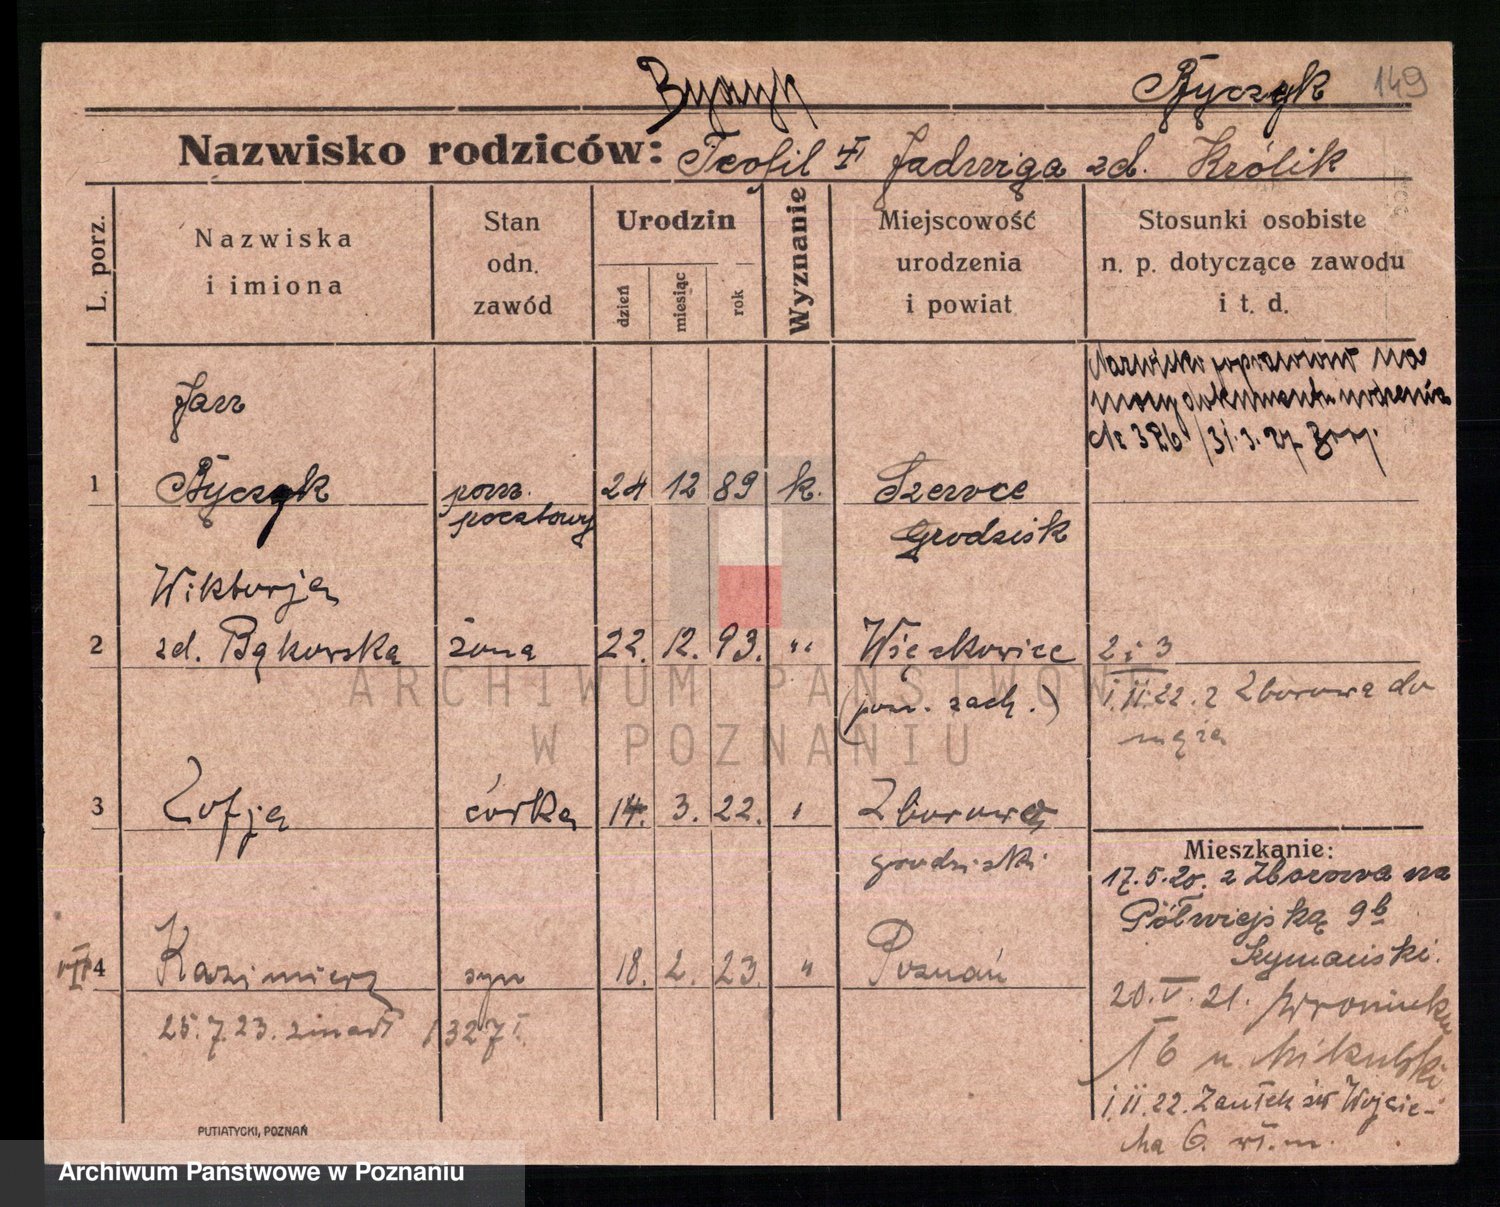 Byczyk Byczyk 149
Nazwisko rodziców: Teofil † Jadwiga zd. Królik
L. porz.
Nazwiska
i imiona
Stan
odn.
zawód
Urodzin
dzień
miesiąc
rok
Wyznanie
Miejscowość
urodzenia
i powiat
Stosunki osobiste
n. p. dotyczące zawodu
i t. d.
Nazwisko poprawiono na
mocy dokumentu urodzenia
31.3.27
Jan
1 Byczyk pom. 24 12 89 k.
pocztowy Grodzisk
Wiktorja
2 zd. Bąkowska żona 22. 12. 93. " Więckowice 2 i 3
(pozn. zach.) 1.II.22. z Zborowa do
męża
3 Zofja córka 14. 3. 22. " Zborowo
grodziski
Mieszkanie:
17.5.20. z Zborowa na
Półwiejską 9b
Szymański.
4 Kazimierz syn 18. 2. 23. " Poznań
25.7.23. zmarł 1327
20.V.21. Wroniecka
16 u Mikulski
1.II.22. Zaułek św Wojcie-
cha 6. wł. m.
PUTIATYCKI, POZNAŃ
ARCHIWUM PAŃSTWOWE
W POZNANIU
Archiwum Państwowe w Poznaniu